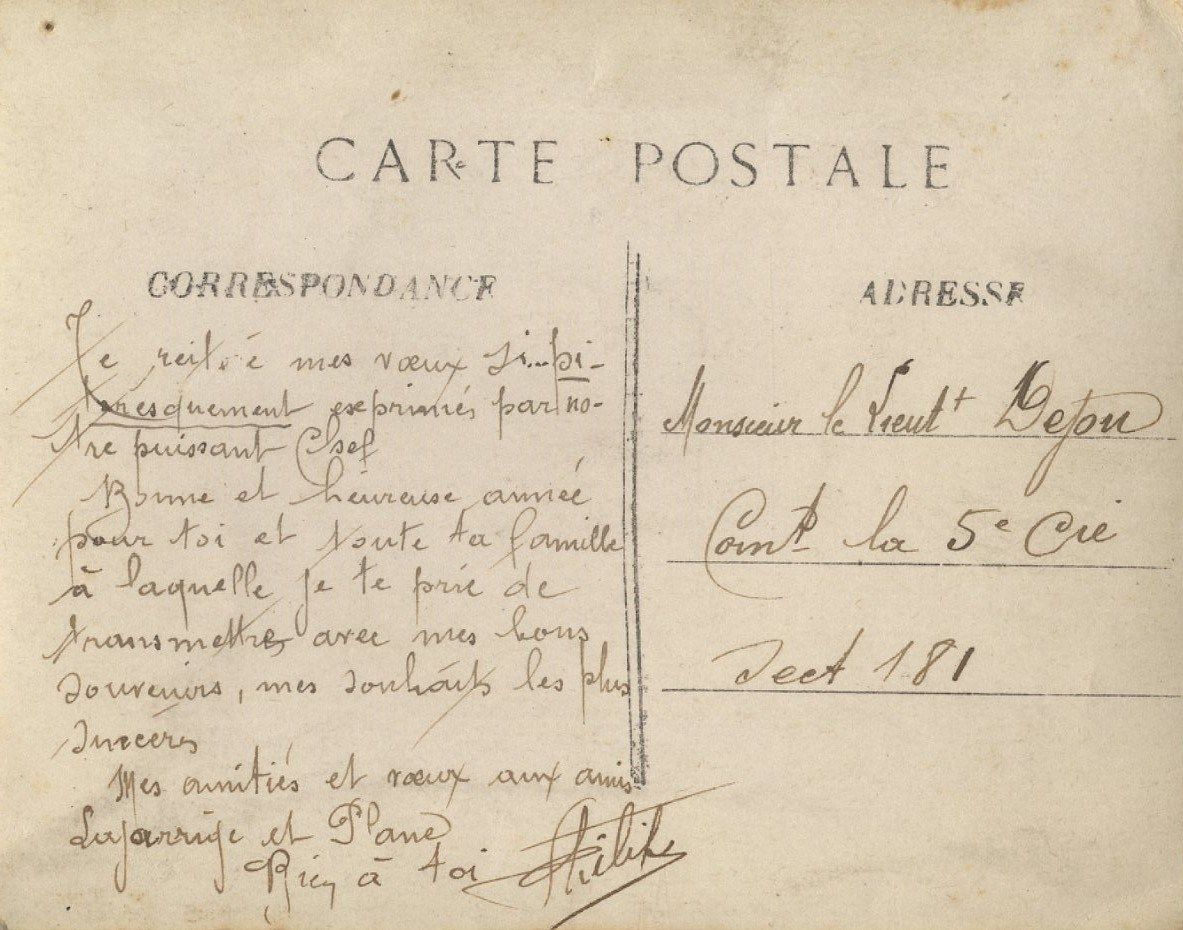 CARTE POSTALE
CORRESPONDANCE
Je reitéré mes vœux si pi-
tresquement exprimés par no-
tre puissant Chef
Bonne et heureuse année
pour toi et toute ta famille
à laquelle je te prie de
transmettre avec mes bons
souvenirs, mes souhaits les plus
sincères
Mes amitiés et vœux aux amis
Lajarrige et Plane
Bien à toi
ADRESSE
Monsieur le Lieutt Dejou
Comt la 5e Cie
Sect 181